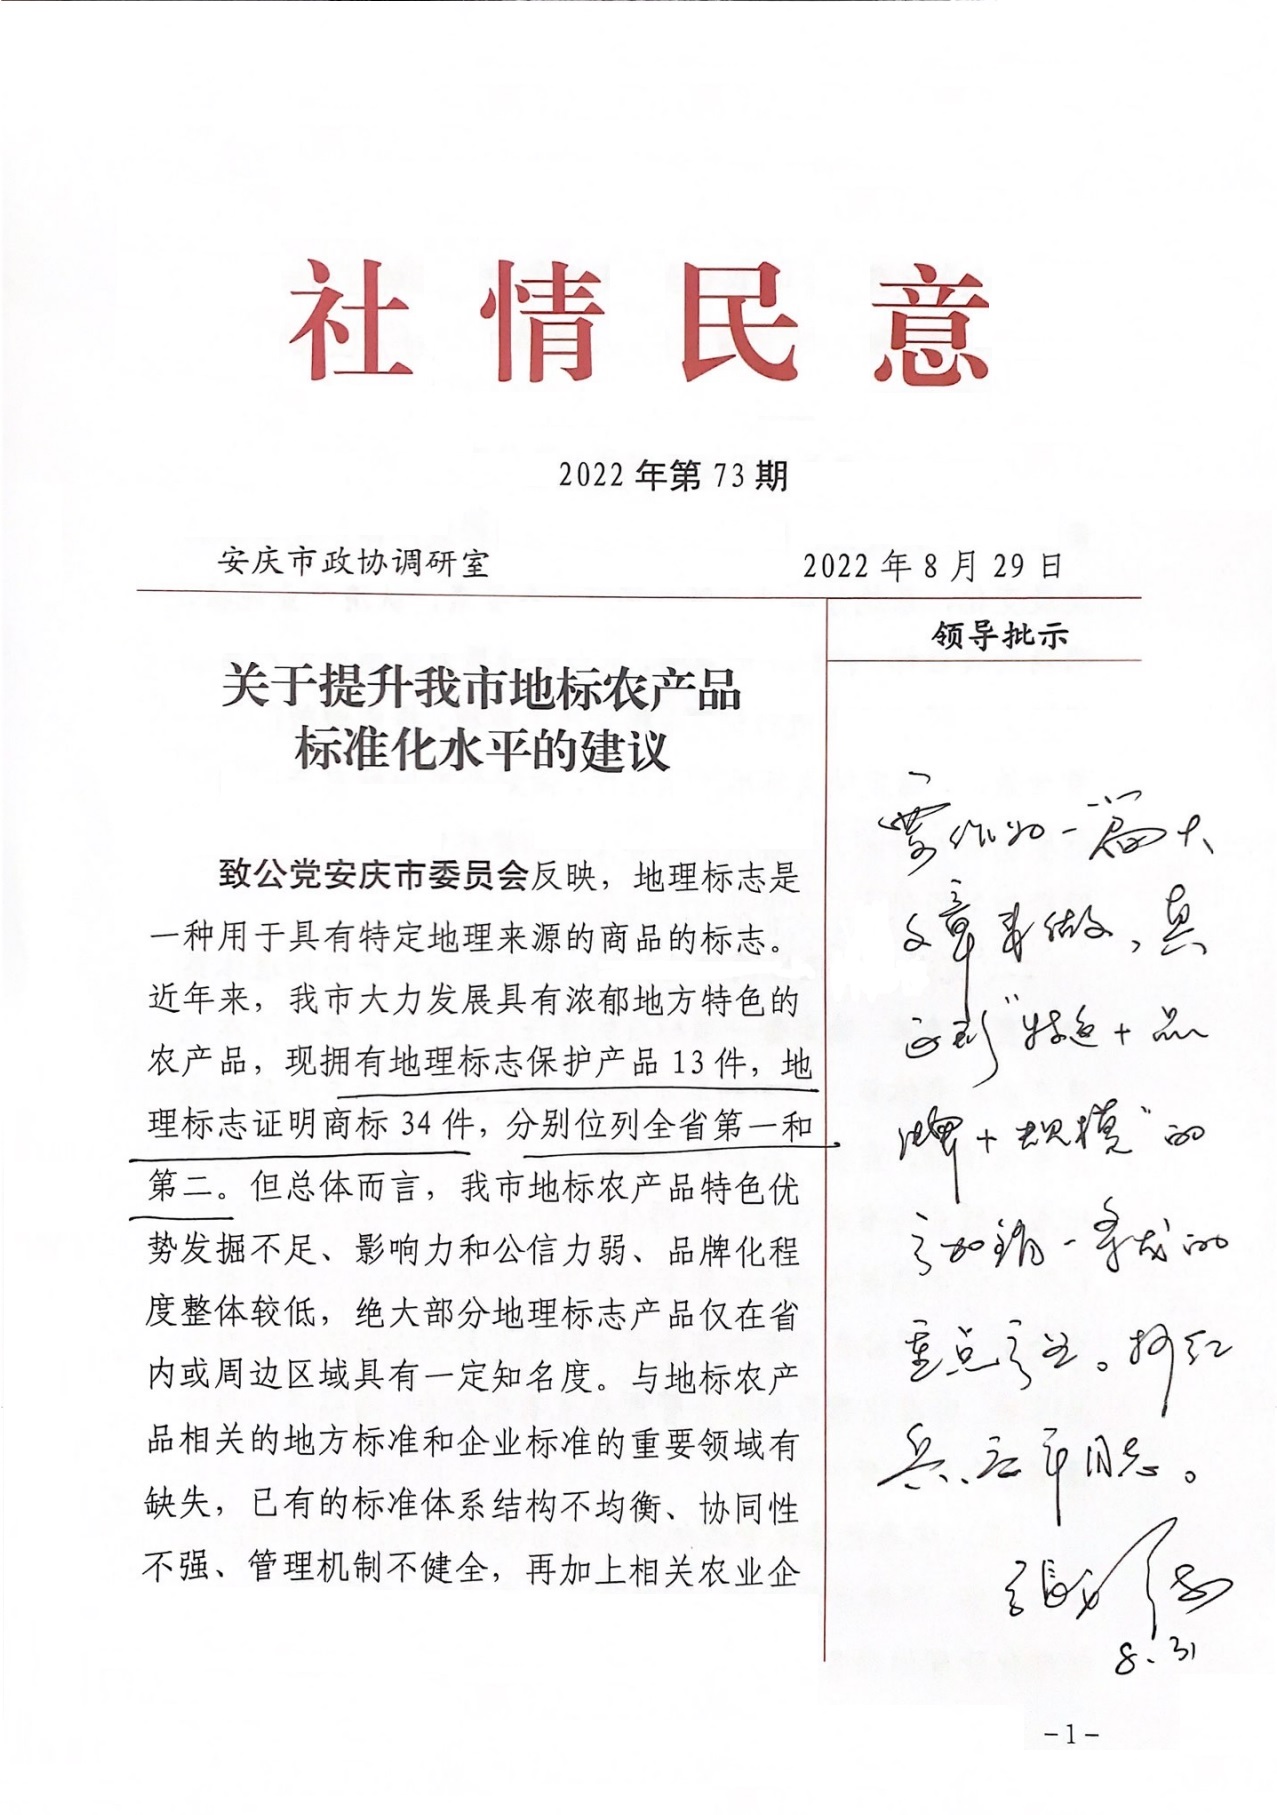 社情民意
2022年第73期
安庆市政协调研室 2022年8月29日
关于提升我市地标农产品
标准化水平的建议
致公党安庆市委员会反映，地理标志是
一种用于具有特定地理来源的商品的标志。
近年来，我市大力发展具有浓郁地方特色的
农产品，现拥有地理标志保护产品13件，地
理标志证明商标34件，分别位列全省第一和
第二。但总体而言，我市地标农产品特色优
势发掘不足、影响力和公信力弱、品牌化程
度整体较低，绝大部分地理标志产品仅在省
内或周边区域具有一定知名度。与地标农产
品相关的地方标准和企业标准的重要领域有
缺失，已有的标准体系结构不均衡、协同性
不强、管理机制不健全，再加上相关农业企
领导批示
要作为一篇大
文章来做，真
正到"特色+品
牌+规模"的
一 的
重点产业。 红
兵、 同志。
张
8.31
-1-